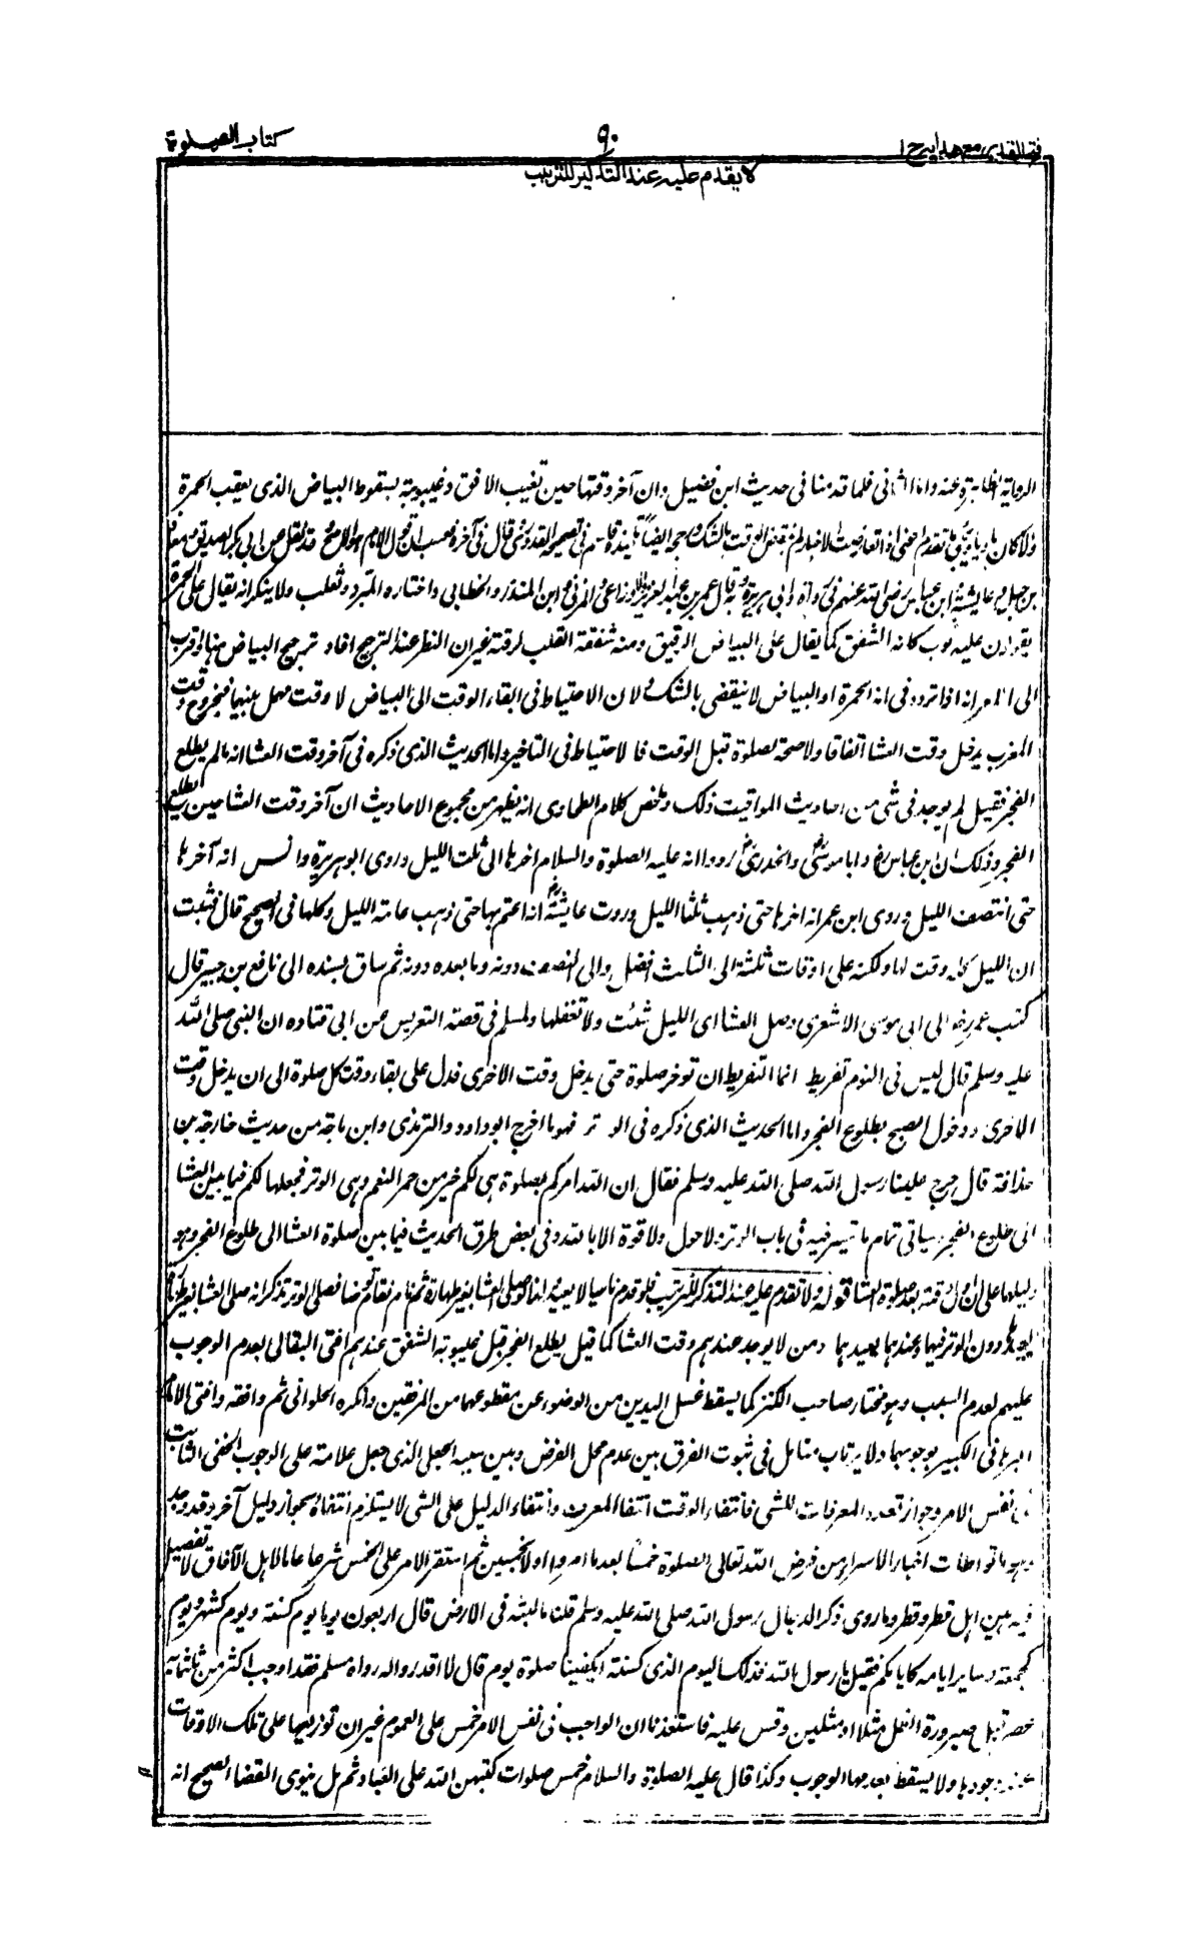 فتح القدير مع هدايه ج ١
٩٠
كتاب الصلوة
لا يقدم عليه عند التذكير للترتيب
الرواية الظاهرة عنه واما الثاني فلما قدمنا في حديث ابن فضيل وان آخر وقتها حين تغيب الافق وغيبوبته بسقوط البياض الذي يعقب الحمرة
بقولون عليه ثوب كانه الشفق كما يقال على البياض الرقيق ومنه شفقة القلب لرقته غير ان النظر عند الترجيح افاد ترجيح البياض هنا واقرب
الى الامر انه اذا تردد في انه الحمرة او البياض لا ينقضي بالشك ولان الاحتياط في ابقاء الوقت الى البياض لا وقت مهمل بينهما فبخروج وقت
المغرب يدخل وقت العشا اتفاقا ولا صحة لصلوة قبل الوقت فا لاحتياط في التاخير واما الحديث الذي ذكره في آخر وقت العشا انه ما لم يطلع
الفجر فقيل لم يوجد في شي من احاديث المواقيت ذلك وملخص كلام الطحاوي انه يظهر من مجموع الاحاديث ان آخر وقت العشا حين يطلع
الفجر وذلك ان ابن عباس رض وابا موسى رض والخدري رض رووا انه عليه الصلوة والسلام اخرها الى ثلث الليل وروى ابو هريرة وانس انه آخرها
حتى انتصف الليل وروى ابن عمر انه اخرها حتى ذهب ثلثا الليل وروت عايشة رض انه اعتم بها حتى ذهب عامة الليل وكلها في الصحيح قال فثبت
ان الليل كله وقت لها ولكنه على اوقات ثلثة الى الثلث افضل والى النصف دونه وما بعده دونه ثم ساق بسنده الى نافع بن جبير قال
كتب عمر رض الى ابي موسى الاشعري وصل العشا اي الليل شئت ولا تغفلها ولمسلم في قصة التعريس عن ابي قتاده ان النبي صلى الله
عليه وسلم قال ليس في النوم تفريط انما التفريط ان توخر صلوة حتى يدخل وقت الاخرى فدل على بقاء وقت كل صلوة الى ان يدخل وقت
الاخرى ودخول الصبح بطلوع الفجر واما الحديث الذي ذكره في الوتر فهو ما اخرج ابو داود والترمذي وابن ماجة من حديث خارجة بن
حذافة قال خرج علينا رسول الله صلى الله عليه وسلم فقال ان الله امركم بصلوة هي لكم خير من حمر النعم وهي الوتر فجعلها لكم فيما بين العشا
الى طلوع الفجر وسياتي تمام ما تيسر فيه في باب الوتر ولا حول ولا قوة الا بالله وفي بعض طرق الحديث فيما بين صلوة العشا الى طلوع الفجر وهو
دليلها على ان اول وقته بعد صلوة العشا قوله ولا تقدم عليه عند التذكر للترتيب فلو قدم ناسيا لا يعيده
يعيدها دون الوتر فيها وعندهما يعيدهما ومن لا يوجد عندهم وقت العشا كما قيل يطلع الفجر قبل غيبوبة الشفق عندهم افتى البقالي بعدم الوجوب
عليهم لعدم السبب وهو مختار صاحب الكنز كما يسقط غسل اليدين من الوضوء عن مقطوعهما من المرفقين وانكره الحلواني ثم وافقه وافتى الامام
البرهاني الكبير بوجوبها ولا يرتاب متامل في ثبوت الفرق بين عدم محل الفرض وبين سببه الجعلي الذي جعل علامة على الوجوب الخفي الثابت
في نفس الامر وجواز تعدد المعرفات للشي فانتفاء الوقت انتفاء المعرف وانتفاء الدليل على الشي لا يستلزم انتفاءه لجواز دليل آخر وقد وجد
وهو ما تواطات اخبار الاسراء من فرض الله تعالى الصلوة خمسا بعد ما امروا اولا بخمسين ثم استقر الامر على الخمس شرعا عاما لاهل الآفاق لا تفصيل
فيه بين اهل قطر وقطر وما روى ذكر الدجال رسول الله صلى الله عليه وسلم قلنا ما لبثه في الارض قال اربعون يوما يوم كسنة ويوم كشهر ويوم
كجمعة وساير ايامه كايامكم فقيل يا رسول الله فذلك اليوم الذي كسنة ايكفينا صلوة يوم قال لا اقدروا له رواه مسلم فقد اوجب اكثر من ثلثماية
عصر قبل صيرورة الظل مثلا او مثلين وقس عليه فاستفدنا ان الواجب في نفس الامر خمس على العموم غير ان توزيعها على تلك الاوقات
عند وجودها ولا يسقط بعدمها الوجوب وكذا قال عليه الصلوة والسلام خمس صلوات كتبهن الله على العباد ثم هل ينوي القضا الصحيح انه